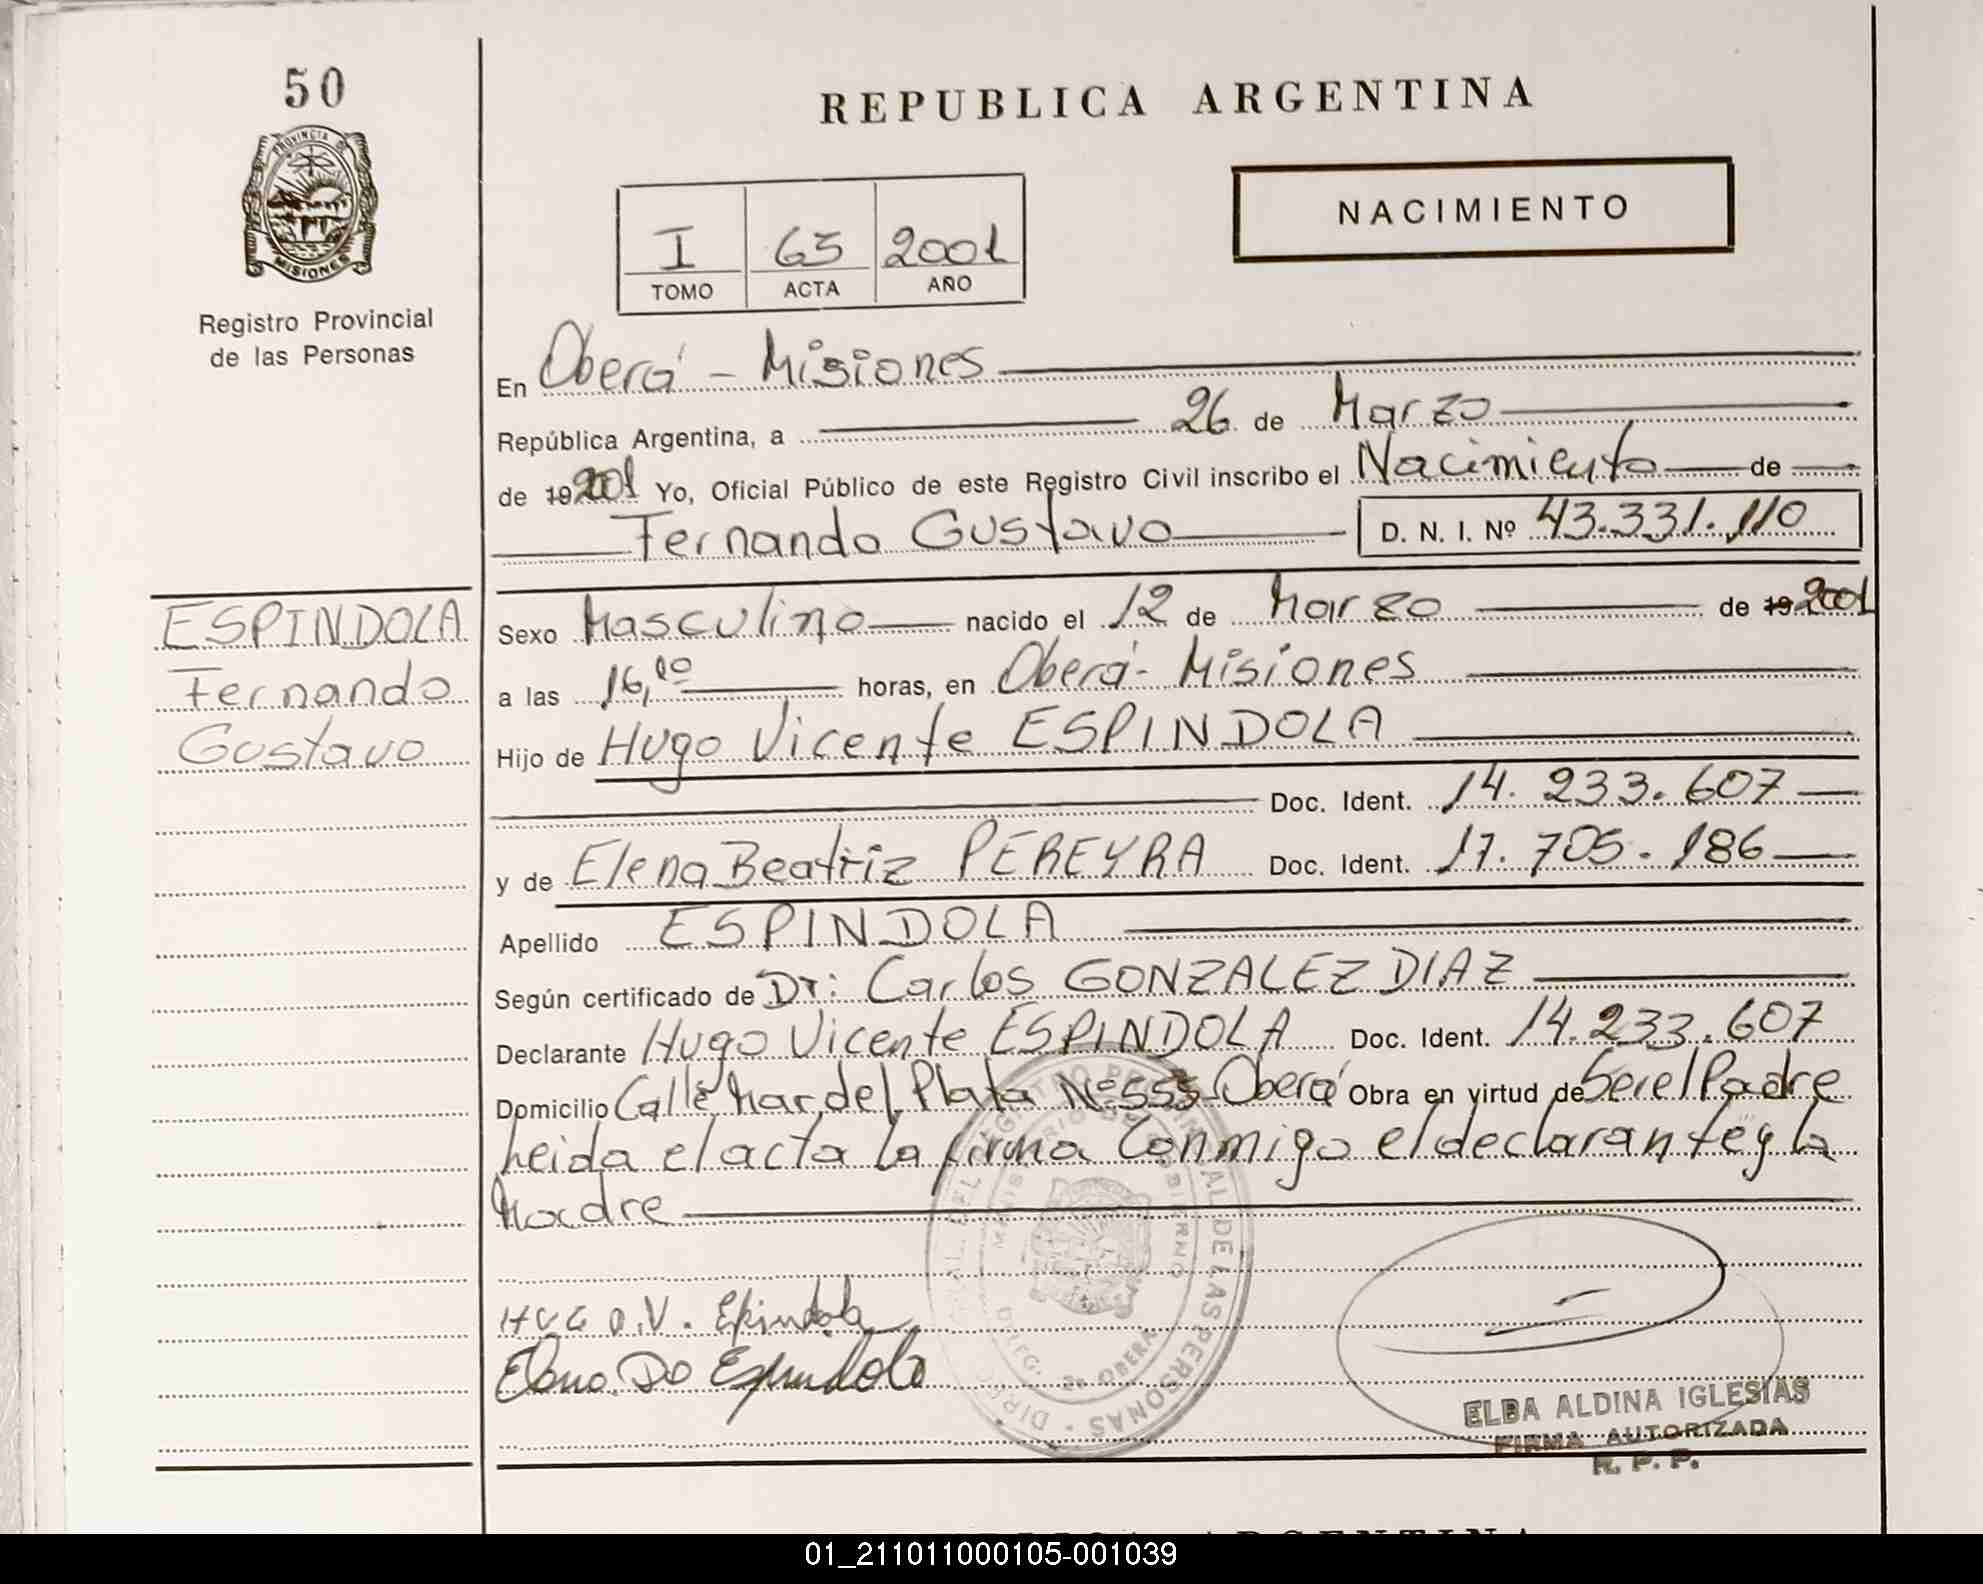 50
REPUBLICA ARGENTINA
PROVINCIA DE
MISIONES
Registro Provincial
de las Personas
NACIMIENTO
I 65 2001
TOMO ACTA AÑO
En Oberá - Misiones
República Argentina, a 26 de Marzo
de 19 2001 Yo, Oficial Público de este Registro Civil inscribo el Nacimiento de
Fernando Gustavo D. N. I. Nº 43.331.110
ESPINDOLA
Fernando
Gustavo
Sexo Masculino nacido el 12 de Marzo de 19 2001
a las 16,00 horas, en Oberá - Misiones
Hijo de Hugo Vicente ESPINDOLA
Doc. Ident. 14.233.607
y de Elena Beatriz PEREYRA Doc. Ident. 17.705.186
Apellido ESPINDOLA
Según certificado de Dr: Carlos GONZALEZ DIAZ
Declarante Hugo Vicente ESPINDOLA Doc. Ident. 14.233.607
Domicilio Calle Mar del Plata Nº 555 Oberá Obra en virtud de Ser el Padre
Leida el acta la firma Conmigo el declarante y la
Madre
HUGO.V. Espindola
Elena De Espindola
DE LAS PERSONAS
OBERA
ELBA ALDINA IGLESIAS
FIRMA AUTORIZADA
R. P. P.
ARGENTINA
01_211011000105-001039